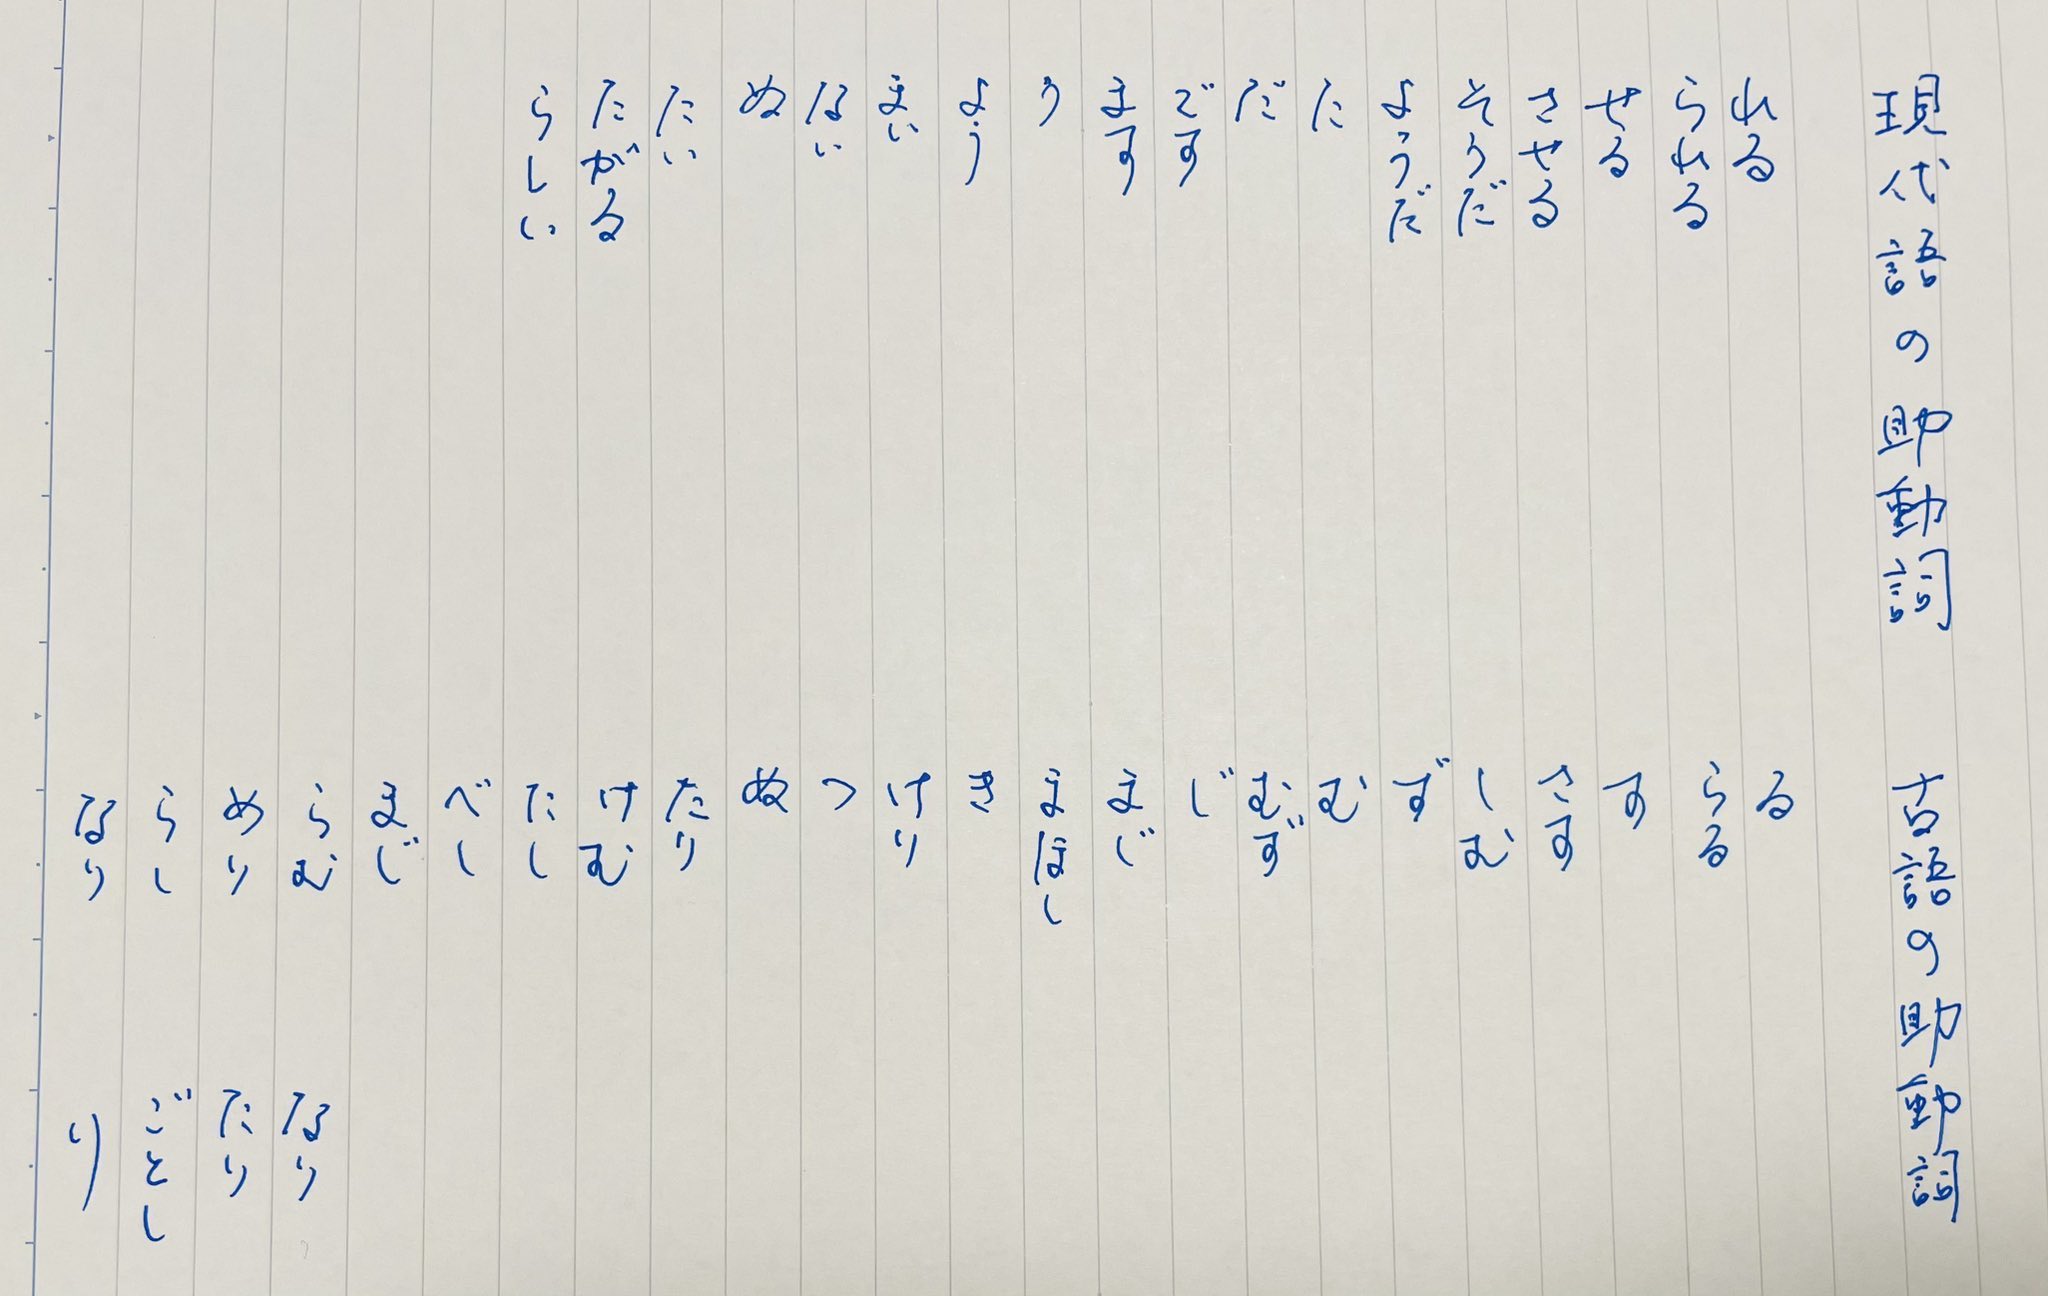 現代語の助動詞
れる
られる
せる
させる
そうだ
ようだ
た
だ
です
ます
う
よう
まい
ない
ぬ
たい
たがる
らしい
古語の助動詞
る
らる
す
さす
しむ
ず
む
むず
じ
まじ
まほし
き
けり
つ
ぬ
たり
けむ
たし
べし
まじ
らむ
めり
らし
なり
なり
たり
ごとし
り